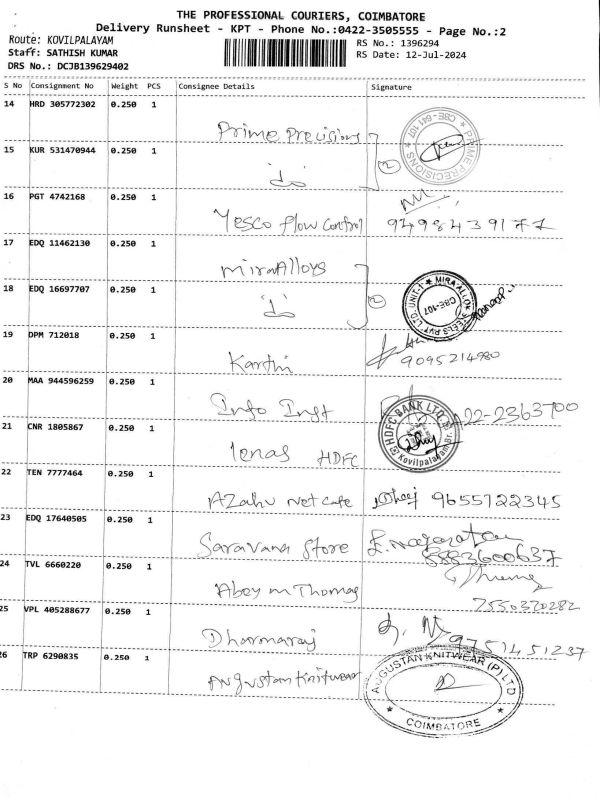 THE PROFESSIONAL COURIERS, COIMBATORE
Delivery Runsheet - KPT - Phone No.:0422-3505555 - Page No.:2
Route: KOVILPALAYAM
RS No.: 1396294
Staff: SATHISH KUMAR
RS Date: 12-Jul-2024
DRS No.: DCJB139629402
S No Consignment No Weight PCS Consignee Details Signature
14 HRD 305772302 0.250 1
Prime Precisions
CBE-641 107 ★ PRIME PRECISIONS ★
15 KUR 531470944 0.250 1
2
16 PGT 4742168 0.250 1
Yesco flow control 9498439177
17 EDQ 11462130 0.250 1
Mira Alloys
18 EDQ 16697707 0.250 1
2
★ MIRA ALLOY STEELS PVT LTD. UNIT-1
CBE-107
19 DPM 712018 0.250 1
Karthi 9095214980
20 MAA 944596259 0.250 1
Info Inst 22-2363700
21 CNR 1805867 0.250 1
HDFC BANK LTD.
Kovilpalayam
HDFC
22 TEN 7777464 0.250 1
Azahu net cafe 9655122345
23 EDQ 17640505 0.250 1
Saravana Store 8883600637
24 TVL 6660220 0.250 1
Abey m Thomas
7550370282
25 VPL 405288677 0.250 1
Dharmaraj 9751451237
26 TRP 6290835 0.250 1
Angustan Knitwear
AUGUSTAN KNITWEAR (P) LTD
★ COIMBATORE ★